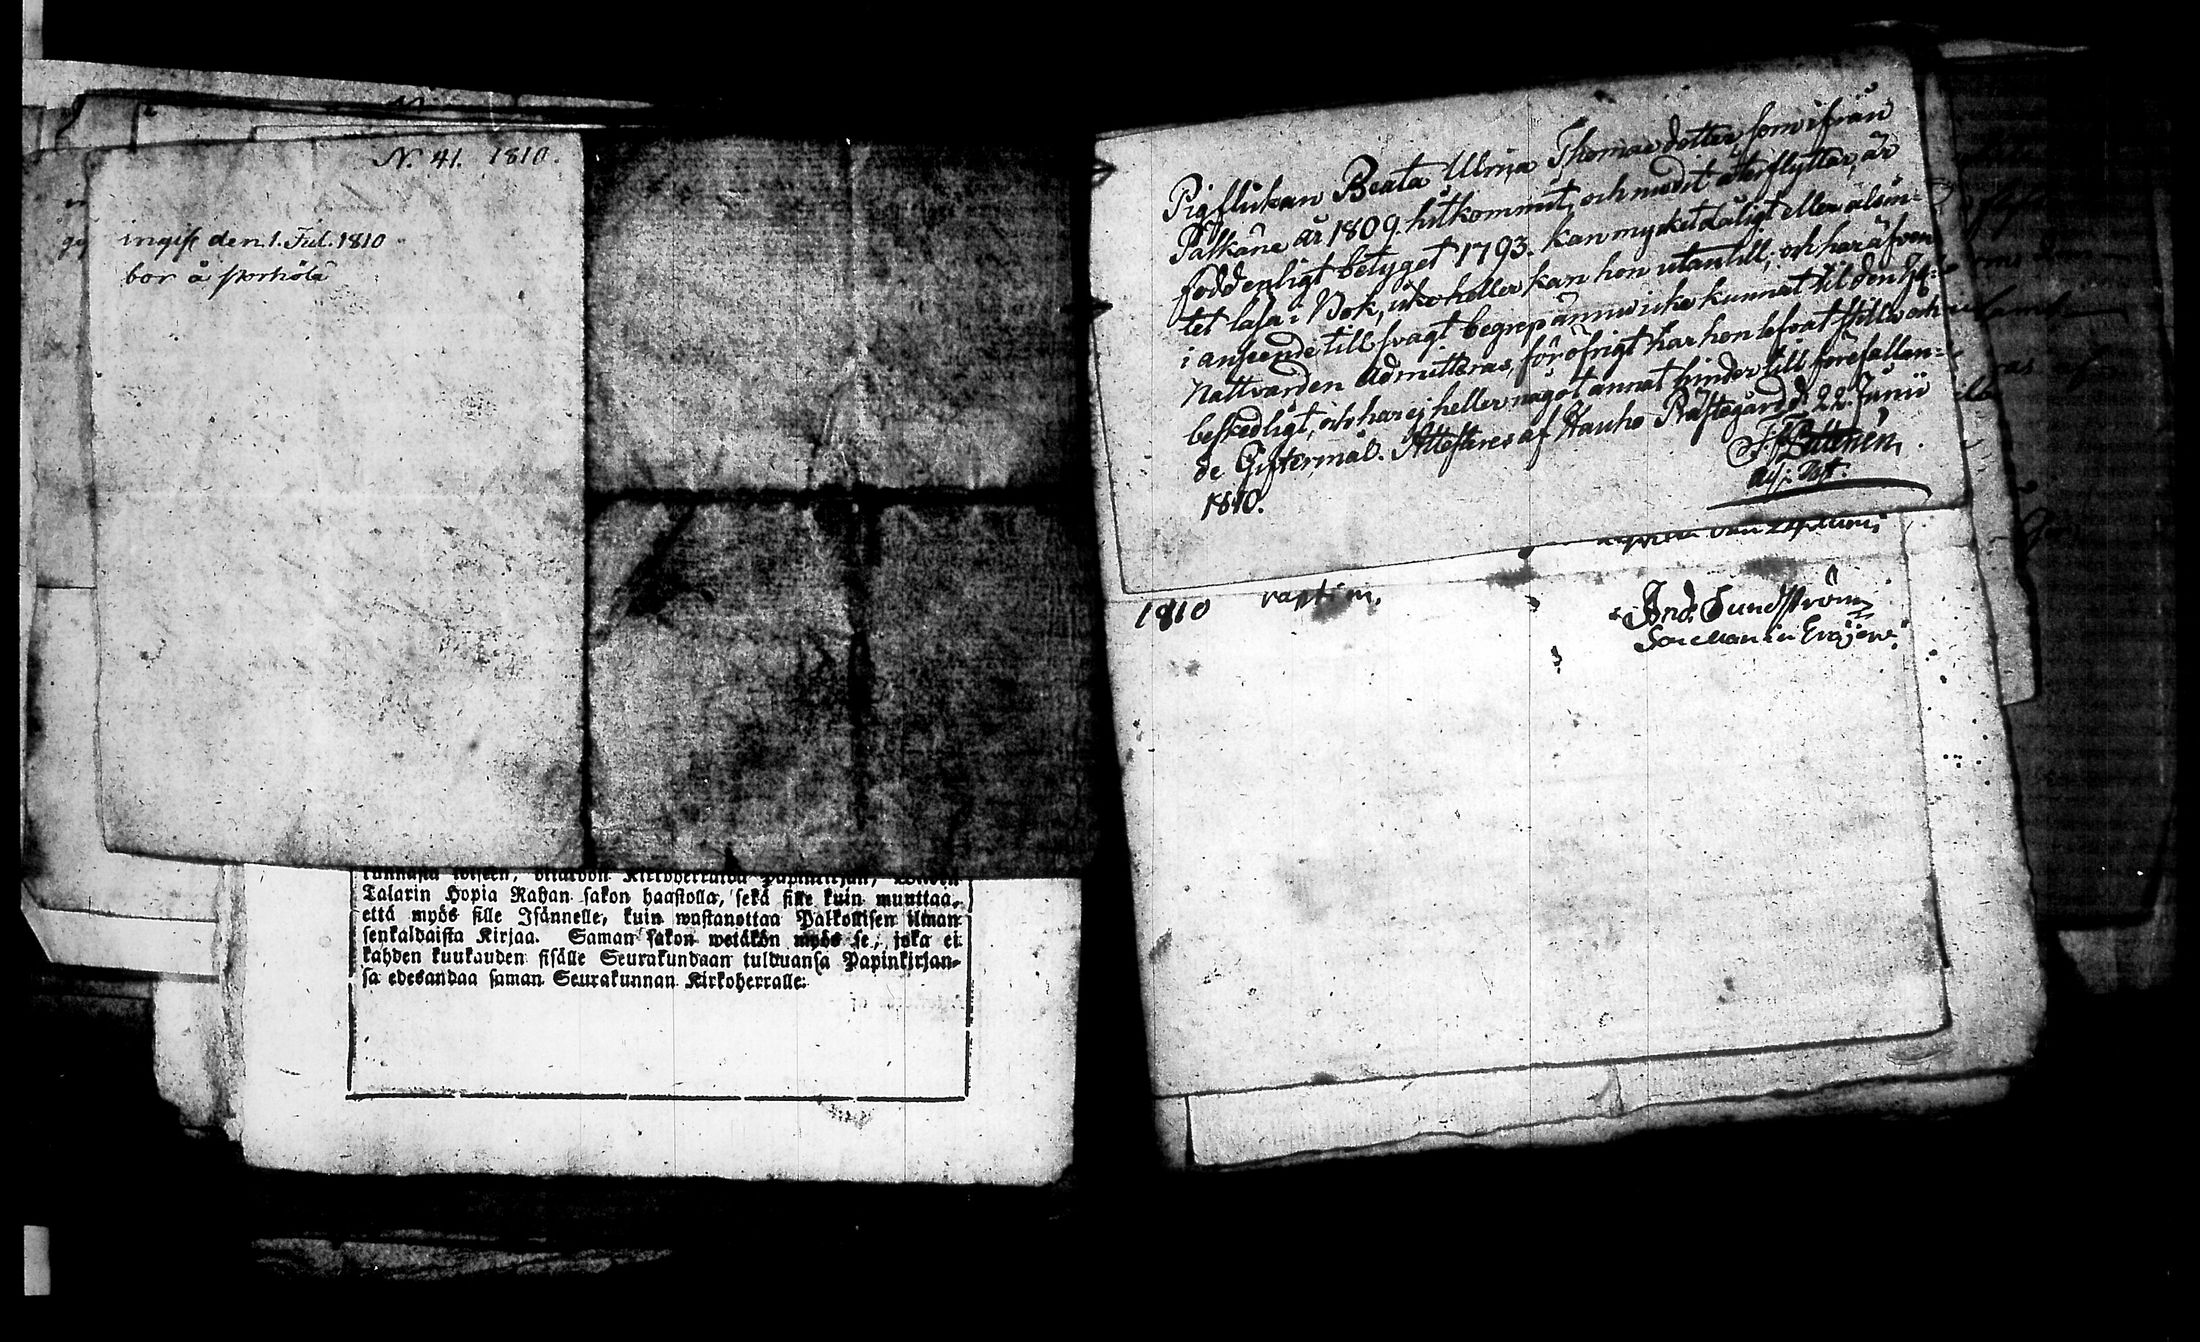 N. 41. 1810.
ingift den 1. Jul. 1810
bor å
Talarin Hopia Rahan sakon haastolla, sekä sille kuin muuttaa,
että myös sille Isännelle, kuin wastanottaa Palkollisen ilman
senkaldaista Kirjaa. Saman sakon wetäkön myös se, joka ei
kahden kuukauden sisälle Seurakundaan tulduansa Papinkirjan-
sa edesandaa saman Seurakunnan Kirkoherralle.
Pigflickan Beata Ulrica Thomae dotter, som ifrån
Pälkäne år 1809 hitkommit, och nu dit återflyttar, är
född enligt betyget 1793. Kan mycket dåligt eller alsin-
tet läsa i Bok, icke heller kan hon utantill; och har äfven
i anseende till svagt begrep ännu icke kunnat til den H:
Nattvarden admitteras, för öfrigt har hon lefvat stilla och
beskedligt, och har ej heller något annat hinder till förefallan-
de Giftermål. Attesteras af Hauho Prästegård d. 22 Junii
1810.
Adj: Past.
1810 raptim.
And. Sundström